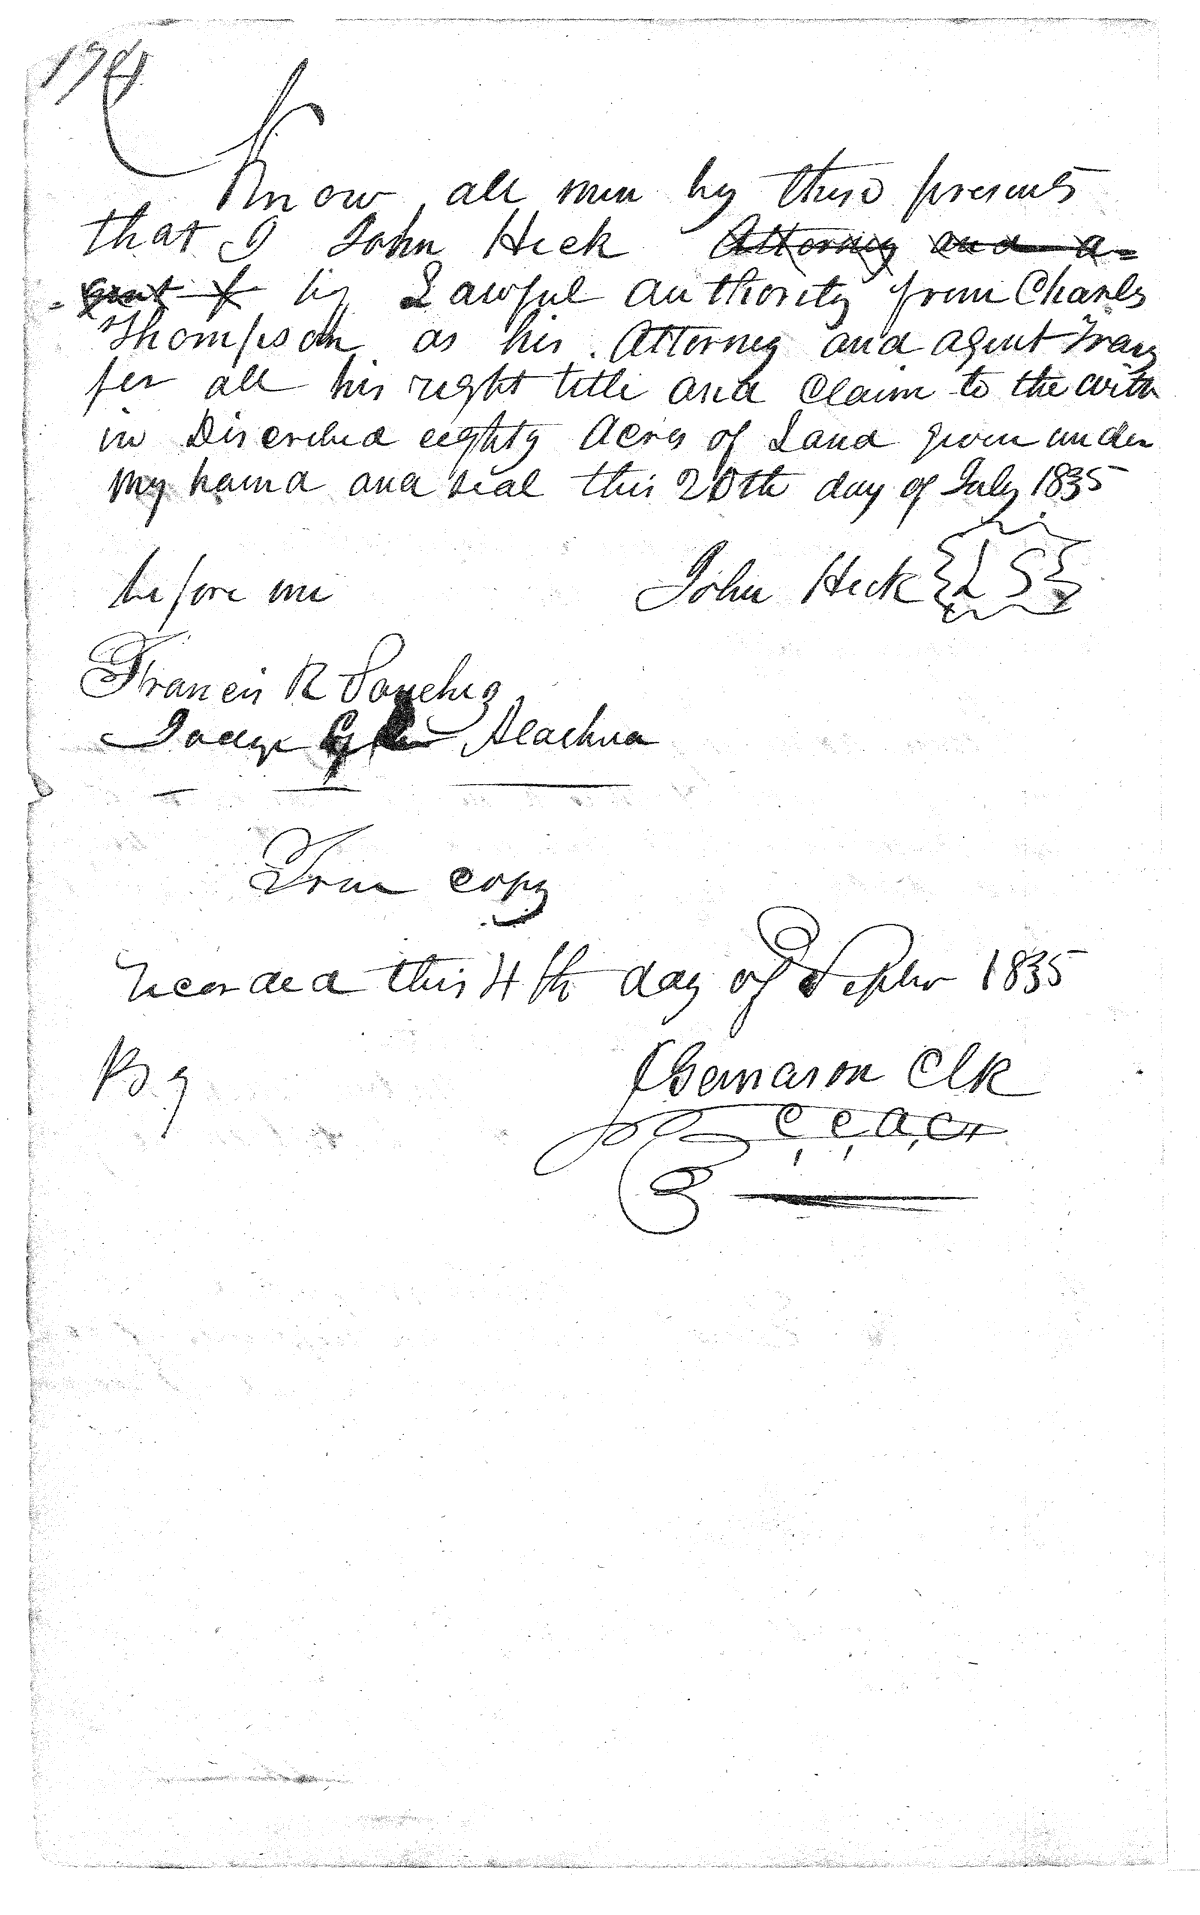 Know all men by these presents
that I John Heck Attorney and a=
=gent of by Lawful authority from Charles
Thompson as his Attorney and agent Trans
fer all his right title and Claim to the with
in Discribed eighty Acres of Land given under
my hand and seal this 20th day of July 1835
before me John Heck {L S}
Francis R Sanchez
Judge Alachua
True copy
recorded this 4th day of Septbr 1835
By Clk
C C A C